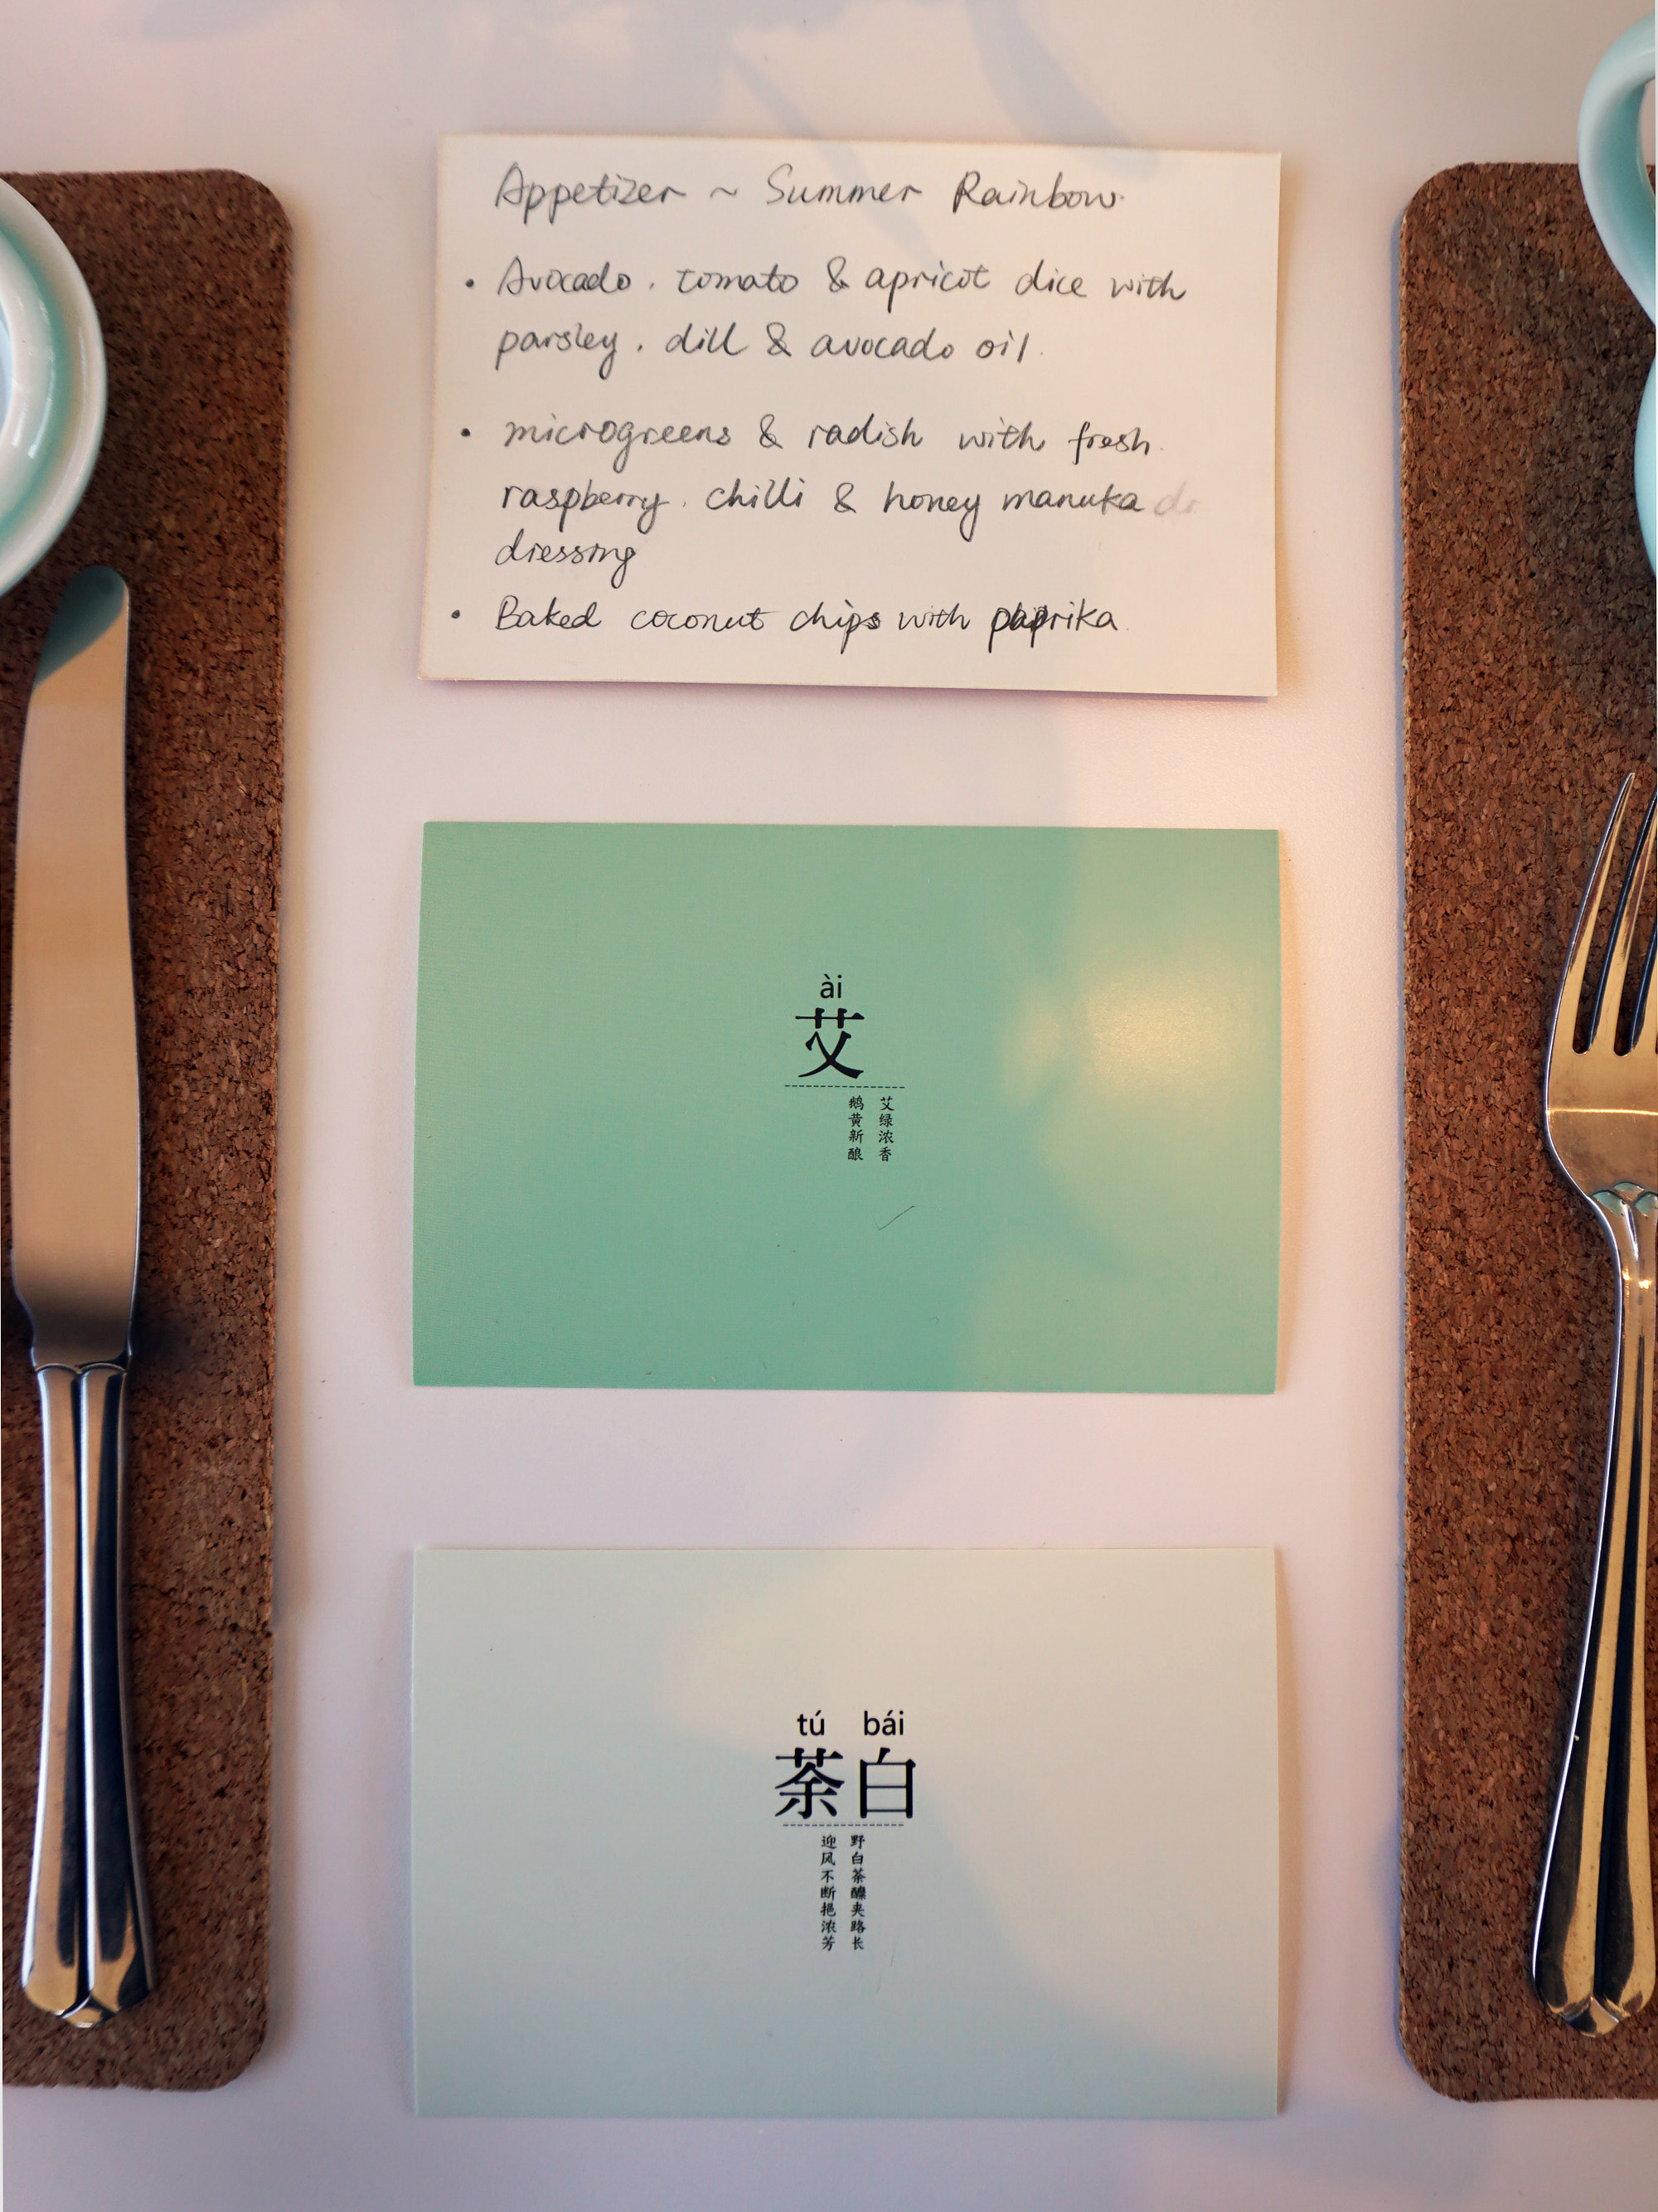 Appetizer ~ Summer Rainbow.
• Avocado, tomato & apricot dice with
parsley, dill & avocado oil.
• microgreens & radish with fresh
raspberry, chilli & honey manuka
dressing
• Baked coconut chips with paprika
ài
艾
艾绿浓香
鹅黄新酿
tú bái
荼白
野白荼醾夹路长
迎风不断挹浓芳